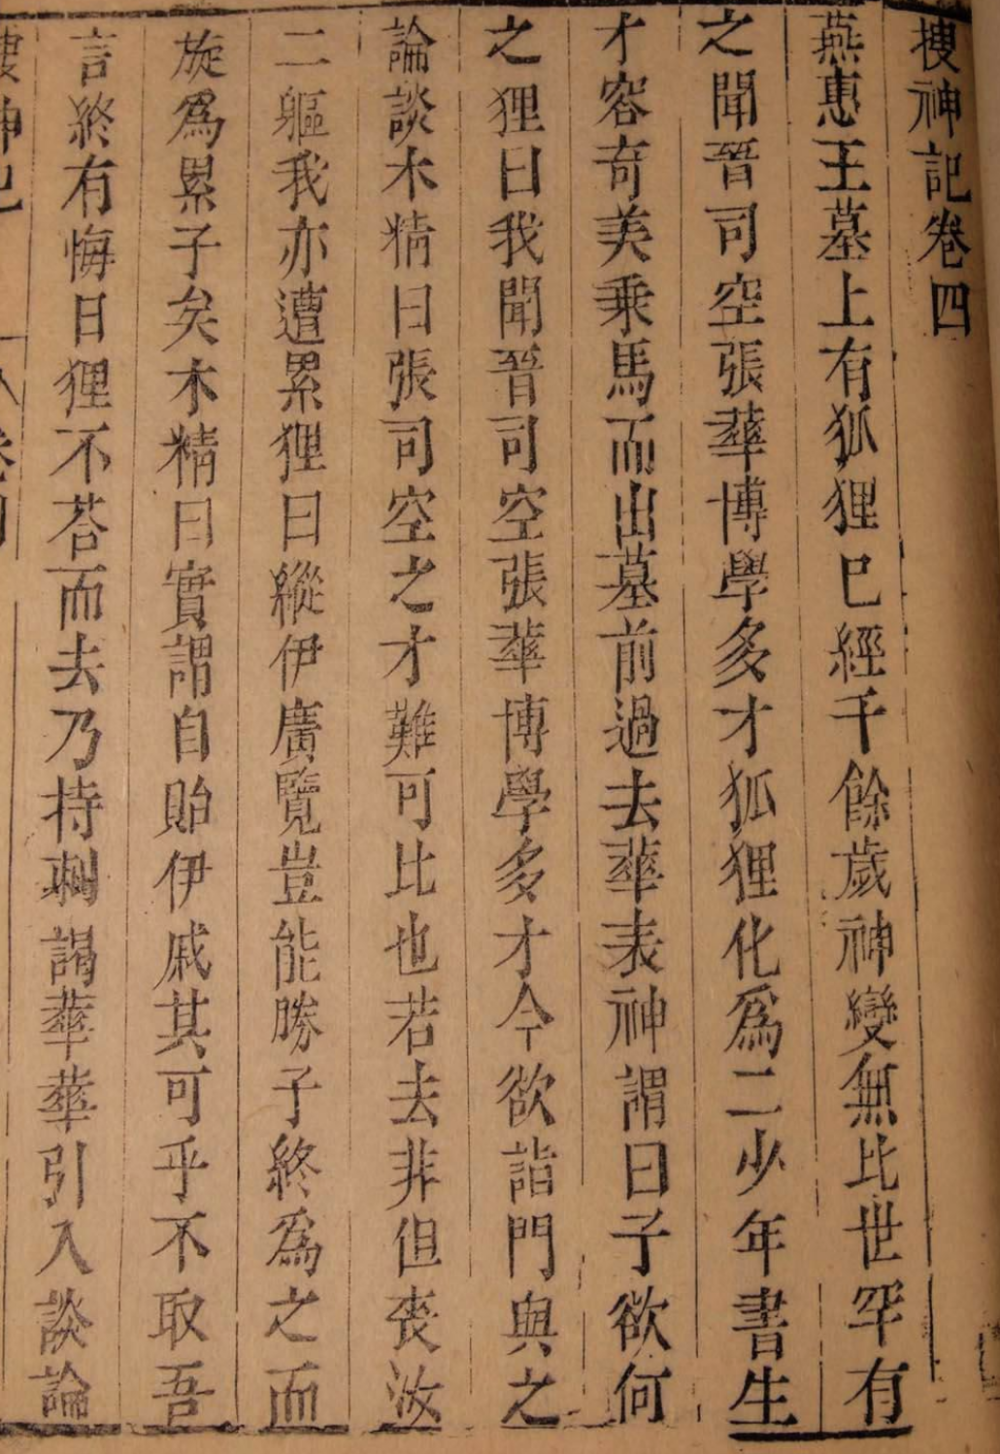 搜神記卷四
燕惠王墓上有狐狸巳經千餘歲神變無比世罕有
之聞晉司空張華博學多才狐狸化為二少年書生
才容奇美乗馬而出墓前過去華表神謂曰子欲何
之狸曰我聞晉司空張華博學多才今欲詣門與之
論談木精曰張司空之才難可比也若去非但喪汝
二軀我亦遭累狸曰縱伊廣覽豈能勝子終為之而
旋為累子矣木精曰實謂自貽伊戚其可乎不取吾
言終有悔日狸不荅而去乃持刺謁華華引入談論